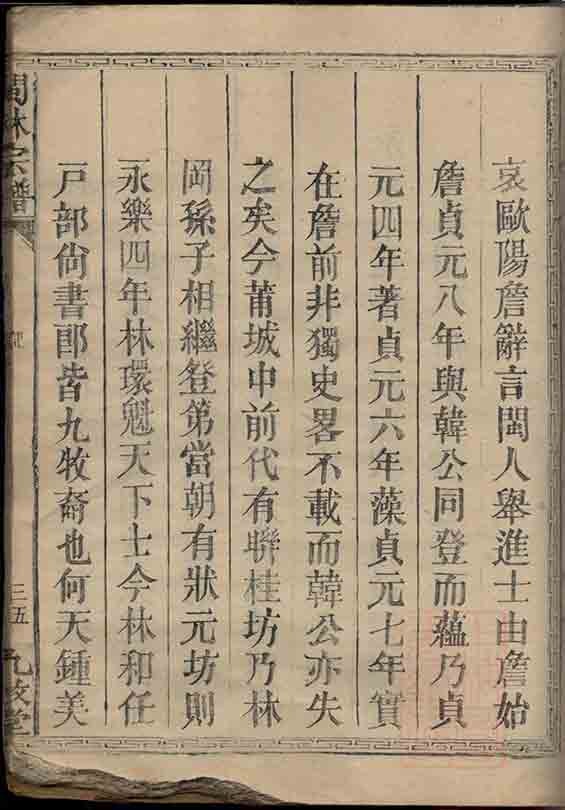 哀歐陽詹辭言閩人舉進士由詹始
詹貞元八年與韓公同登而蘊乃貞
元四年著貞元六年藻貞元七年實
在詹前非獨史畧不載而韓公亦失
之矣今莆城中前代有聨桂坊乃林
岡孫子相繼登第當朝有狀元坊則
永樂四年林環魁天下士今林和任
戸部尙書郎皆九牧裔也何天鍾美
林宗譜
三五
九牧堂